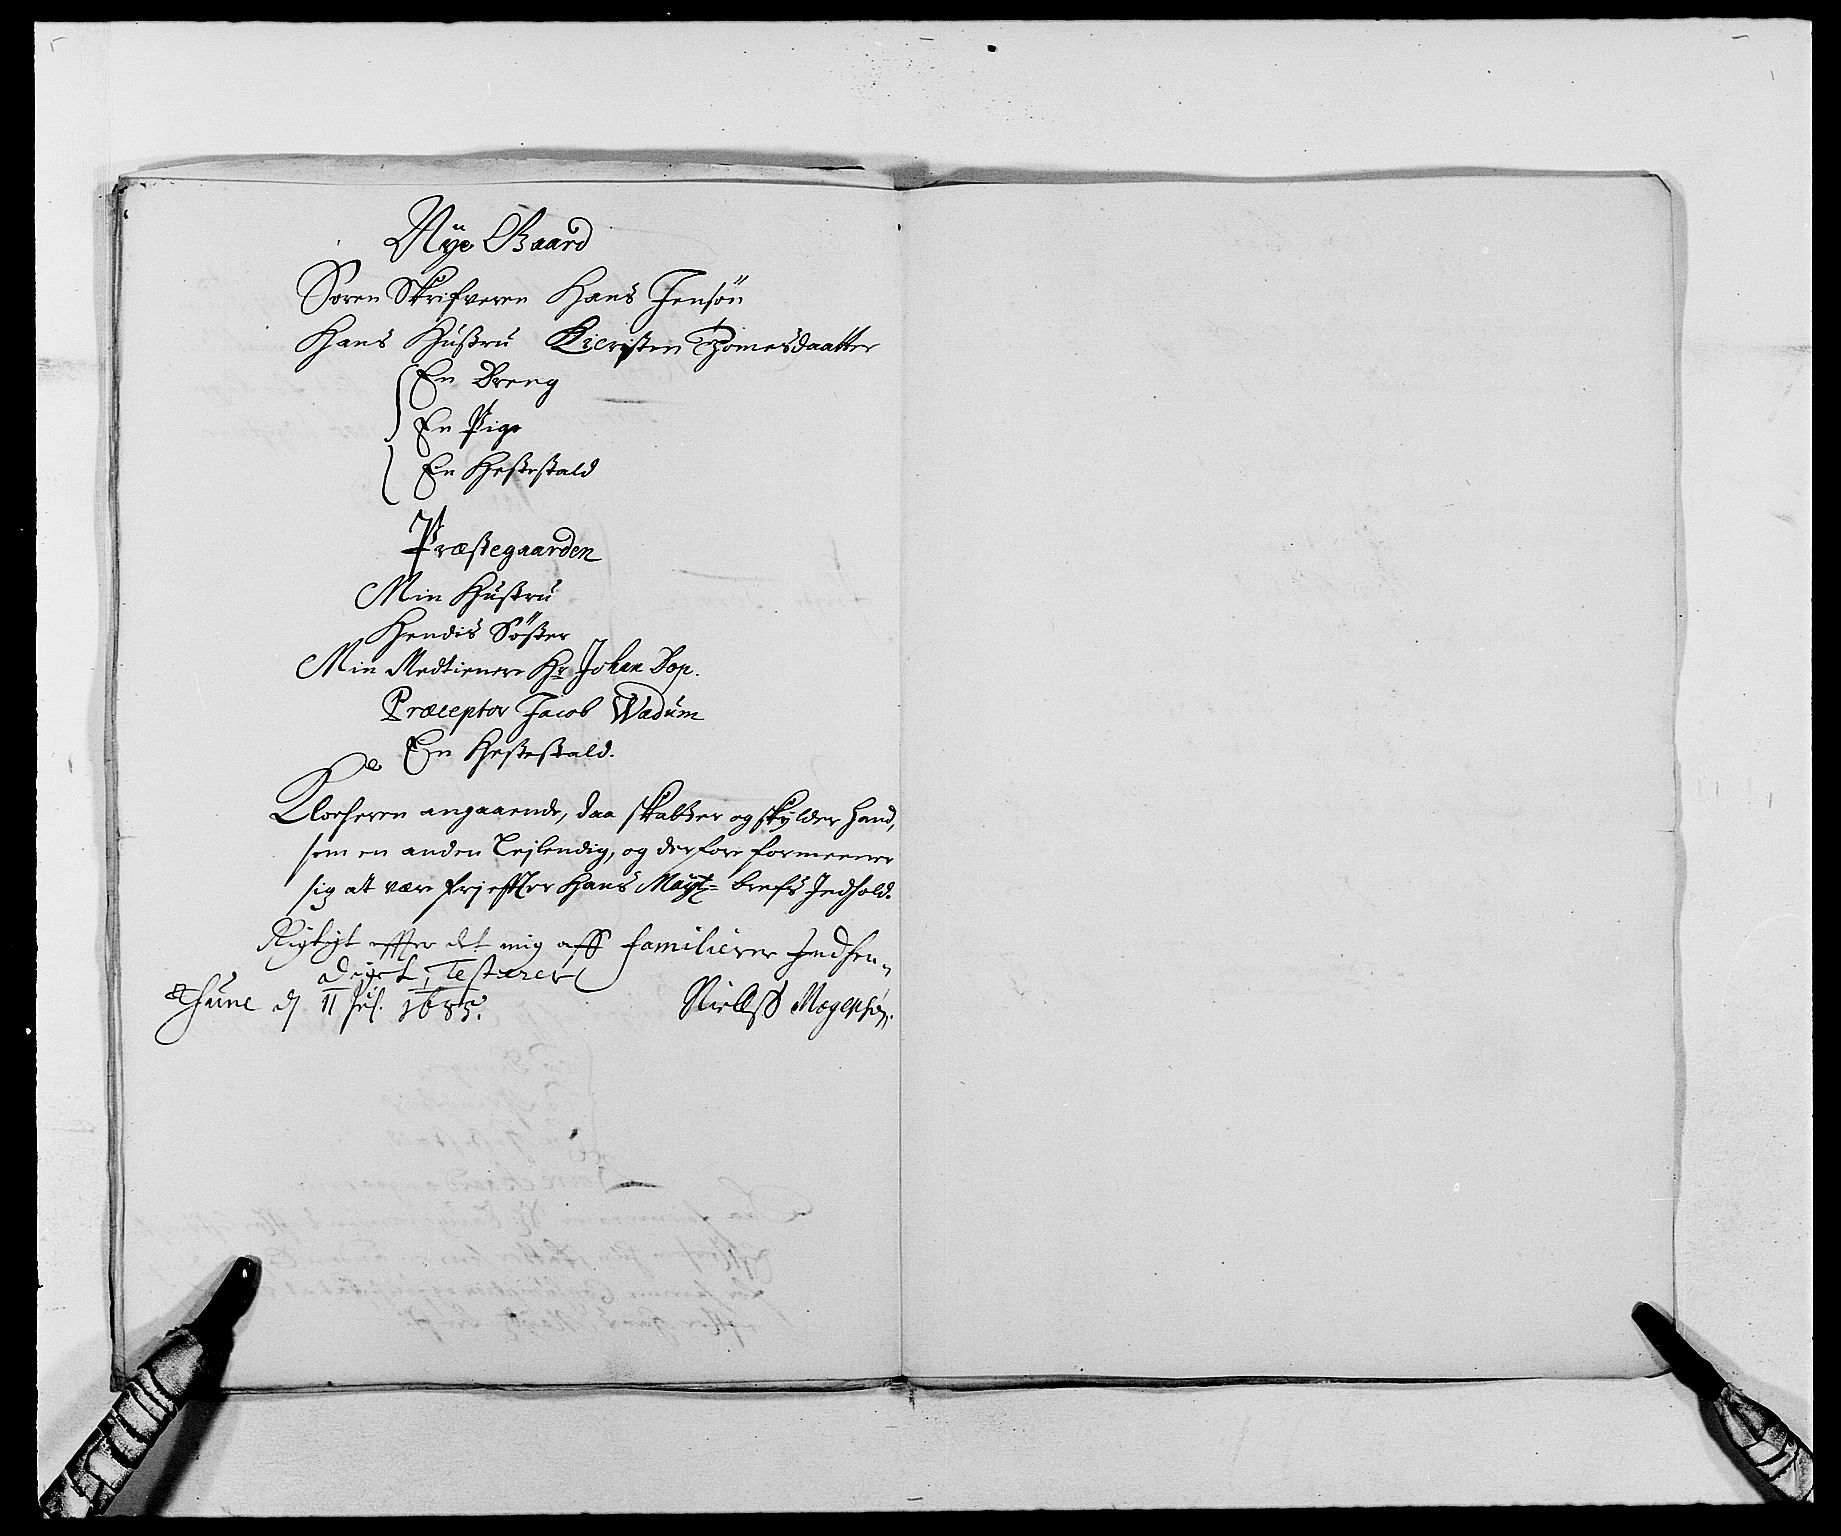 Nÿe Gaard
Soren Skrifveren Hans Jensøn
Hans Hustru Kiersten Thomesdaatter
En Dreng
En Pige
En Hestestald
Præstegaarden
Min Hustru
Hendis Søster
Min Medtienere Hr Johan Dop.
Præceptor Jacob Wadum
En Hestestald.
Klocheren angaaende, daa skatter og skylder hand,
som en anden Leilending, og derfore formeener
sig at være frj efter Hans Maÿt= brefs Indhold.
Rigtigt effter det mig aff familierer Indsen-
digt, Testerer
Thune d 11 Jul. 1685.
Niellss Mogensøn.